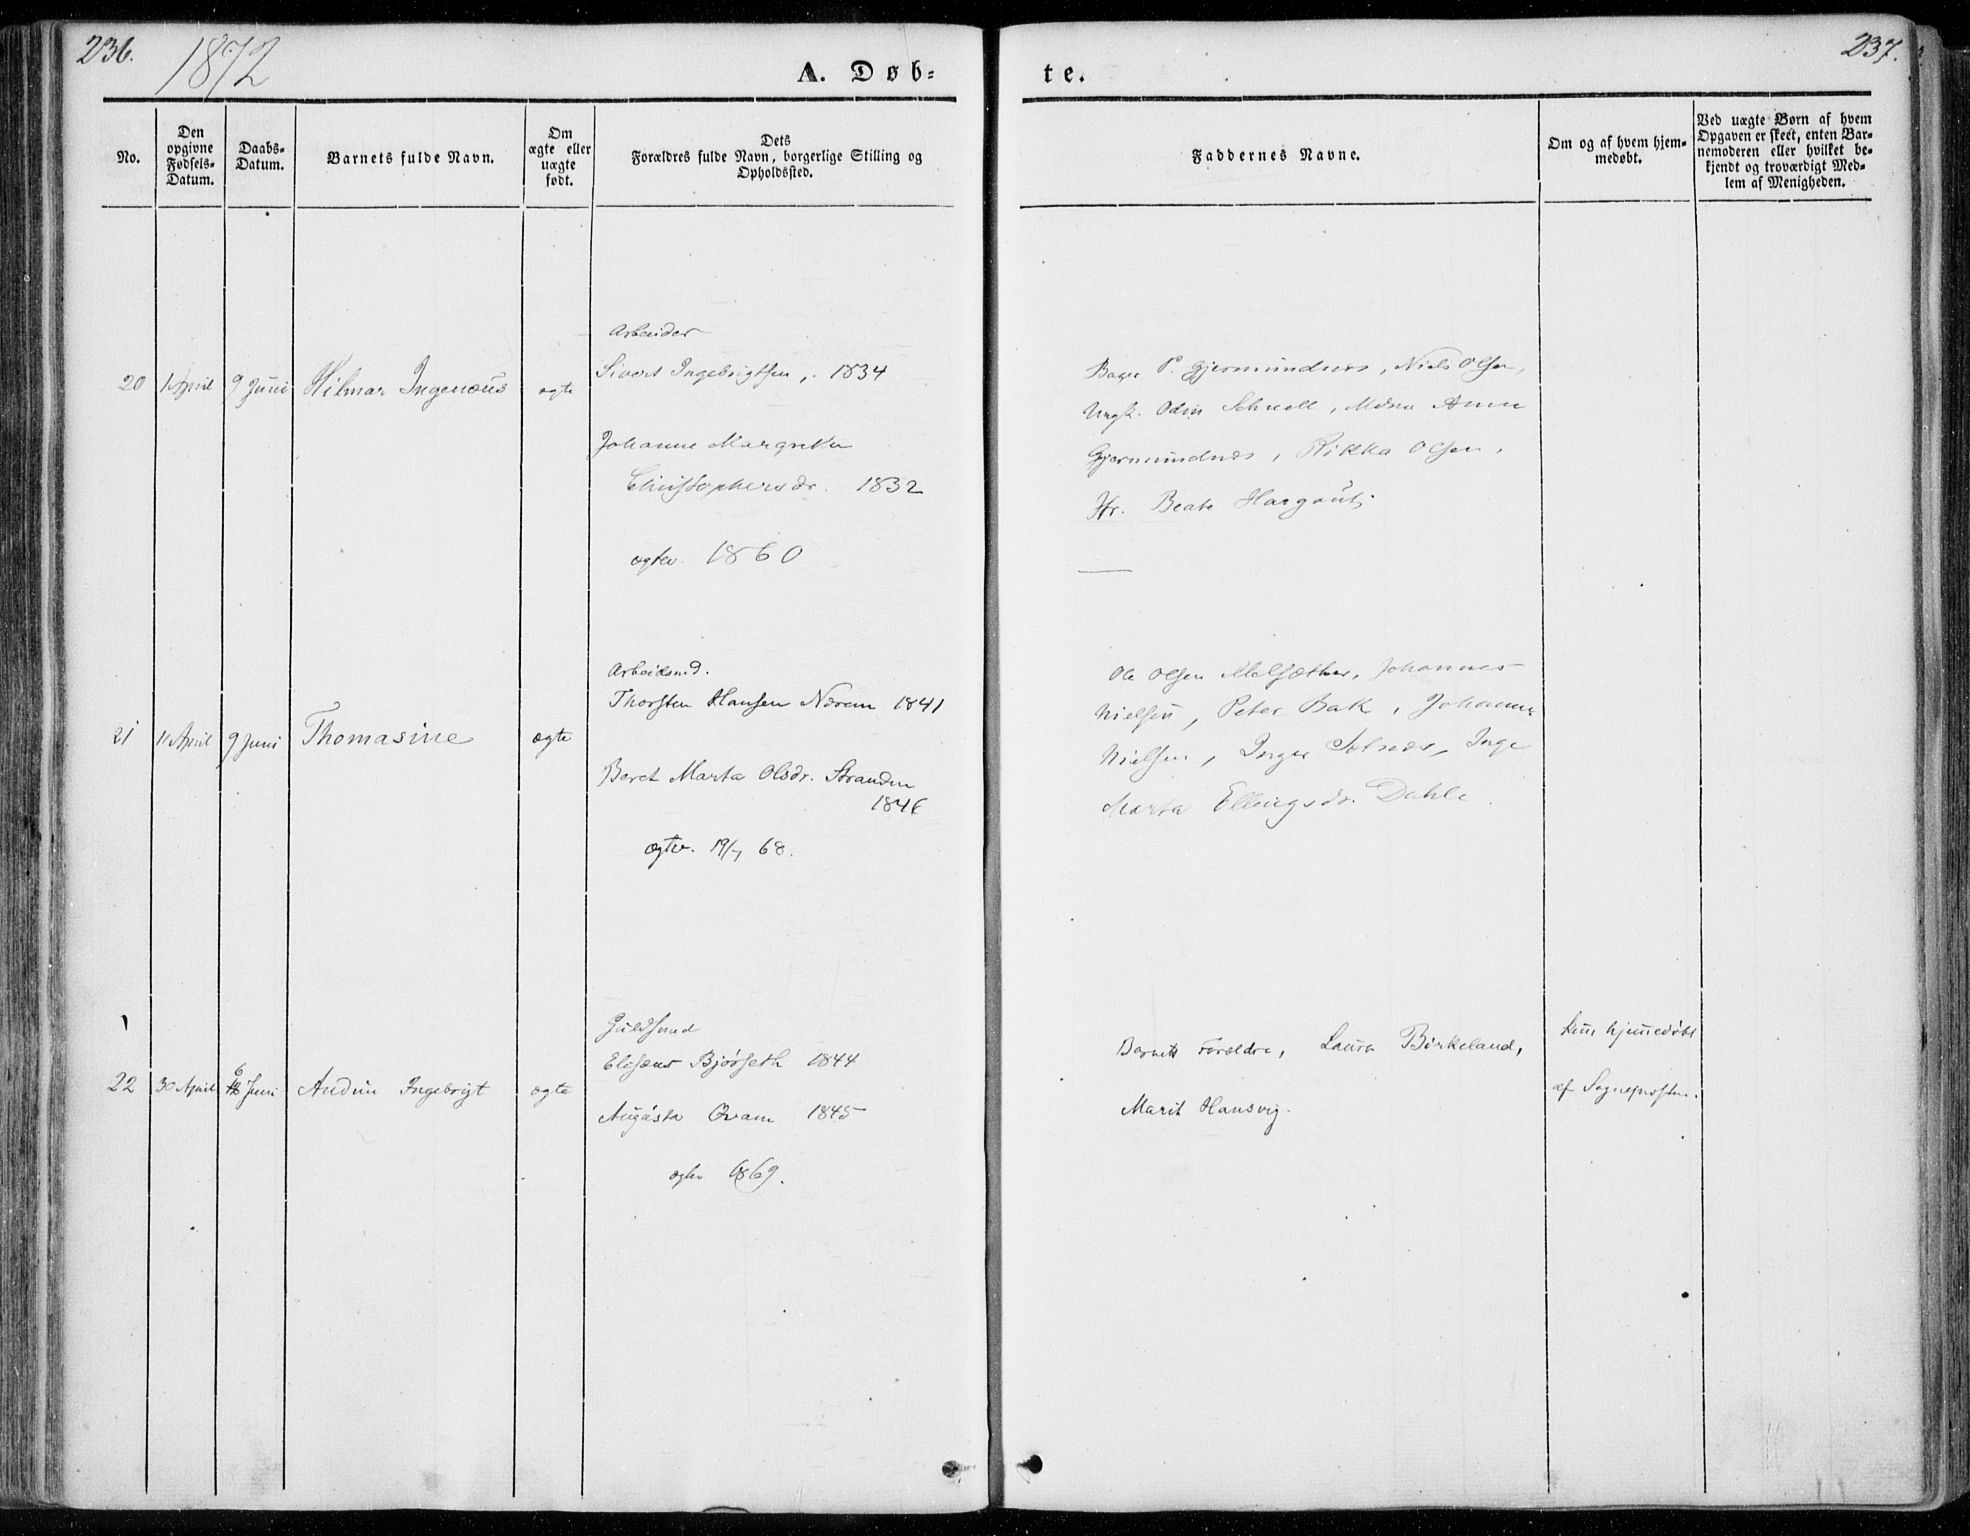 236.
1872
A. Døb-
te.
237.
No.
Den
opgivne
Fødsels-
Datum.
Daabs-
Datum.
Barnets fulde Navn.
Om
ægte eller
uægte
født.
Dets
Forældres fulde Navn, borgerlige Stilling og
Opholdssted.
Faddernes Navne.
Om og af hvem hjem-
medøbt.
Ved uægte Børn af hvem
Opgaven er skeet, enten Bar-
nemoderen eller hvilket be-
kjendt og troværdigt Med-
lem af Menigheden.
20
1 April
9 Juni
Hilmar Ingenæus
ægte
Arbeider
Sivert Ingebrigtsen, 1834
Johanne Margrete
Christophersdr. 1832
ægtev. 1860
Bager P. Gjermundnæs, Niels Olsen,
Ungk. Odin Schnell, Anne
Gjermundnæs, Rikka Olsen,
Jfr. Beate
21
11 April
9 Juni
Thomasine
ægte
Arbeidsmd.
Thorsten Hansen Nærem 1841
Beret Marta Olsdr. Stranden
1846
ægtev. 19/7 68.
Ole Olsen Melsæther, Johannes
Nielsen, Peter Bak, Johanne
Nielsen, Inger Solnæs, Inge
Marta Ellingsdr. Dahle
22
30 April
6
Juni
Audun Ingebrigt
ægte
Guldsmed
Elisæus Bjørseth 1844
Augusta Qvam 1845
ægtev 1869.
Barnets Forældre, Laura Birkeland,
Marit Hansvig.
hjemmedøbt
af Sognepresten.